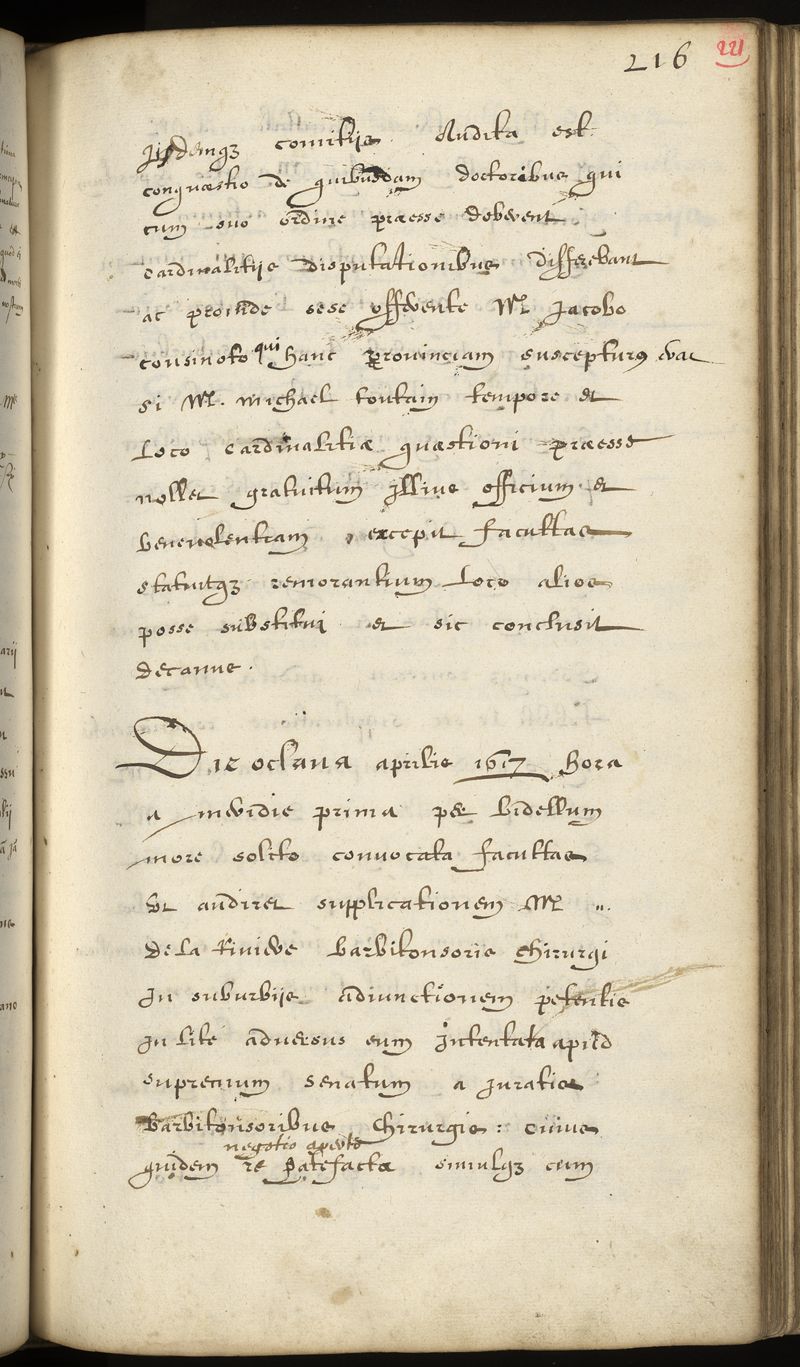 216
221
Iisdemq3 comitijs Audita est
conquæstio de quibusdam doctoribus qui
cum suo ordine præesse deberent
cardinalitijs disputationibus differebant
ac proinde sese offerente Mr Jacobo
cousinoto qui hanc provinciam suscepturus erat
si Mr. michael toutain tempore et
Loco cardinalitiæ quæstioni præesse
nollet gratuitum illius officium et
benevolentiam excepit facultas
statuitq3 remorantium Loco alios
posse substitui et sic conclusit
decanus.
Die octava aprilis 1617 hora
a meridie prima per bidellum
more solito convocata facultas
Vt audiret supplicationem Mr ..
de La Riviere barbitonsoris chirurgi
in suburbijs adiunctionem petentis
in lite adversus eum intentata apud
supremum senatum a juratis
barbitonsoribus chirurgis: cuius
negotio aperto
quidem re patefacta simulq3 cum